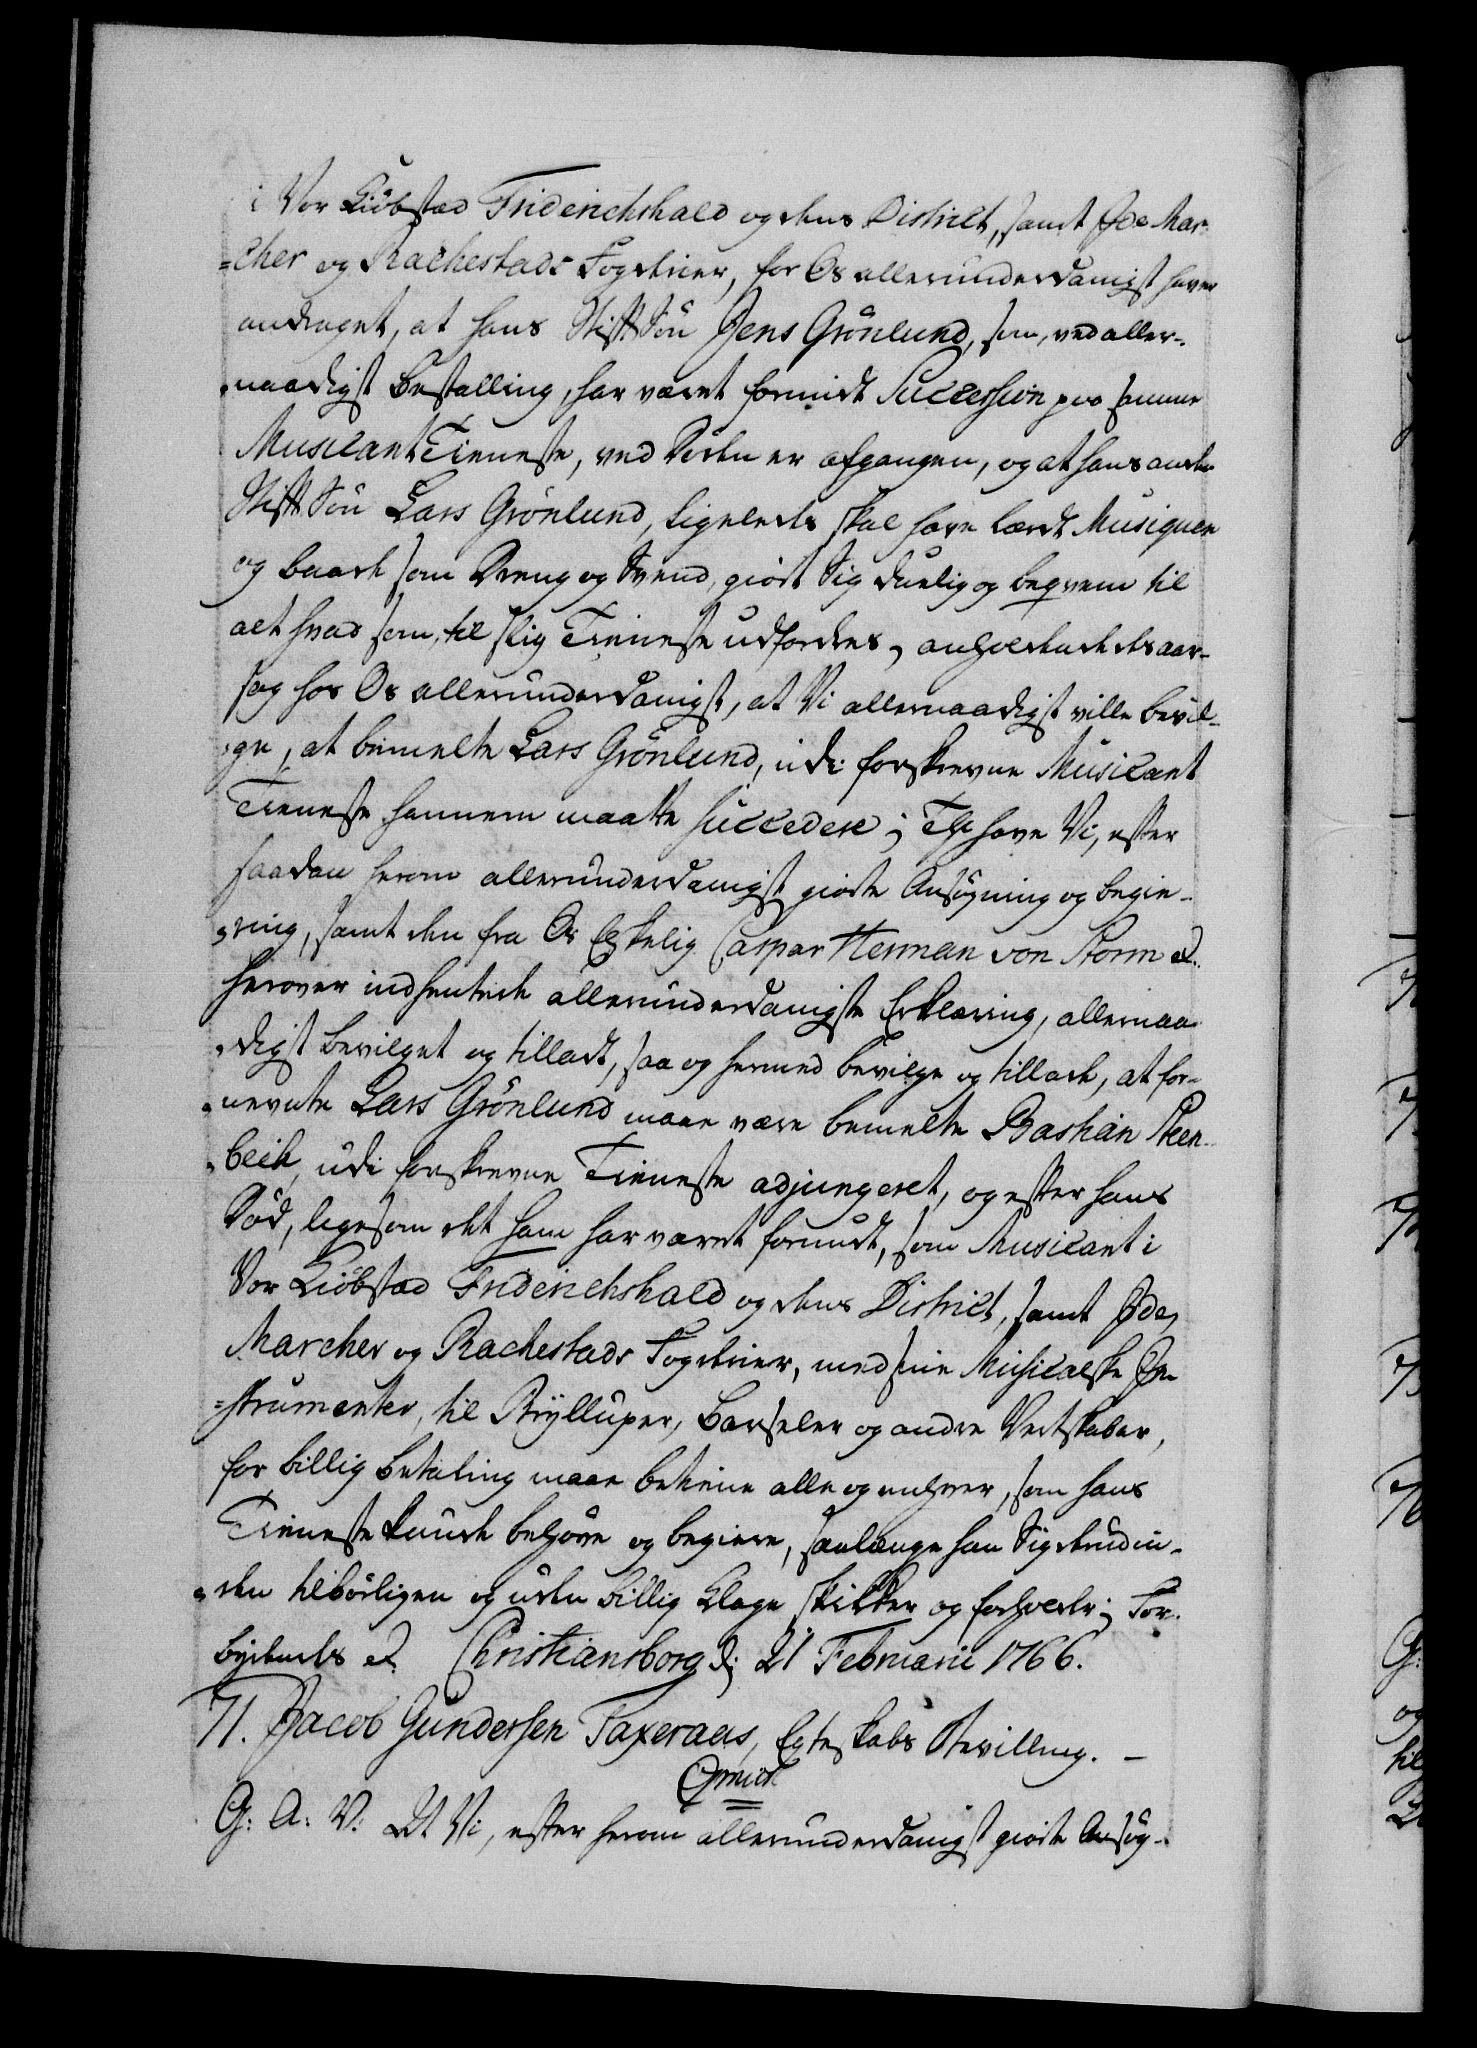 i Vor Kiöbstad Friderichshald og dens District, samt Jde Mar-
=cher og Rachestads Fogderier, for Os allerunderdanigst haver
andraget, at hans Stif Sön Jens Grönlund, som, ved aller-
naadigst Bestalling, har været forundt Succession paa samme
Musicant Tieneste, ved Döden er afgangen, og at hans anden
Stif Sön Lars Grönlund, ligeleds skal have lærdt Musiquen
og baade som Dreng og Svend, giort sig duelig og beqvem til
alt hvad som til slig Tieneste udfordres, anholdende desaar-
sag hos Os allerunderdanigst, at Vi allernaadigst ville bevil-
ge, at bemelte Lars Grönlund, udi forskrevne Musicant
Tieneste hannem maatte succedere; Thi have Vi, efter
saadan herom allerunderdanigst giorte Ansögning og begie-
ring, samt den fra Os Elskelig Caspar Herman von Storm etc.
herover indhentede allerunderdanigste Erklæring, allernaa-
digst bevilget og tilladt, saa og hermed bevilge og tillade, at for-
nevnte Lars Grönlund maae være bemelte Bastian Steen-
beck, udi forskrevne Tieneste adjungeret, og efter hans
Död, ligesom det ham har været forundt, som Musicant i
Vor Kiöbstad Friderichshald og dens District, samt Jde
Marcher og Rachestads Fogderier, med sine Musicalske In
=strumenter, til Bryllupper, Barseler og andre Vertskaber,
for billig Betaling maae betiene alle og enhver, som hans
Tieneste kunde behöve og begiere, saalænge han sig derudin-
den tilbörligen og uden billig Klage skikker og forholder; For-
bydendes etc. Christiansborg d. 21 Februarii 1766.
71. Jacob Gundersen Taxeraas, Egteskabs Bevilling. –
Gratis
G: A: V: At Vi, efter herom allerunderdanigst giorte Ansög-